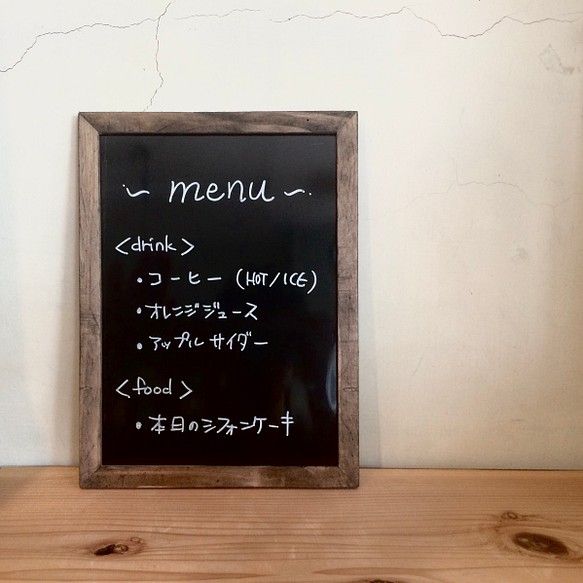 ~ menu ~
<drink>
・コーヒー (HOT/ICE)
・オレンジジュース
・アップルサイダー
<food>
・本日のシフォンケーキ